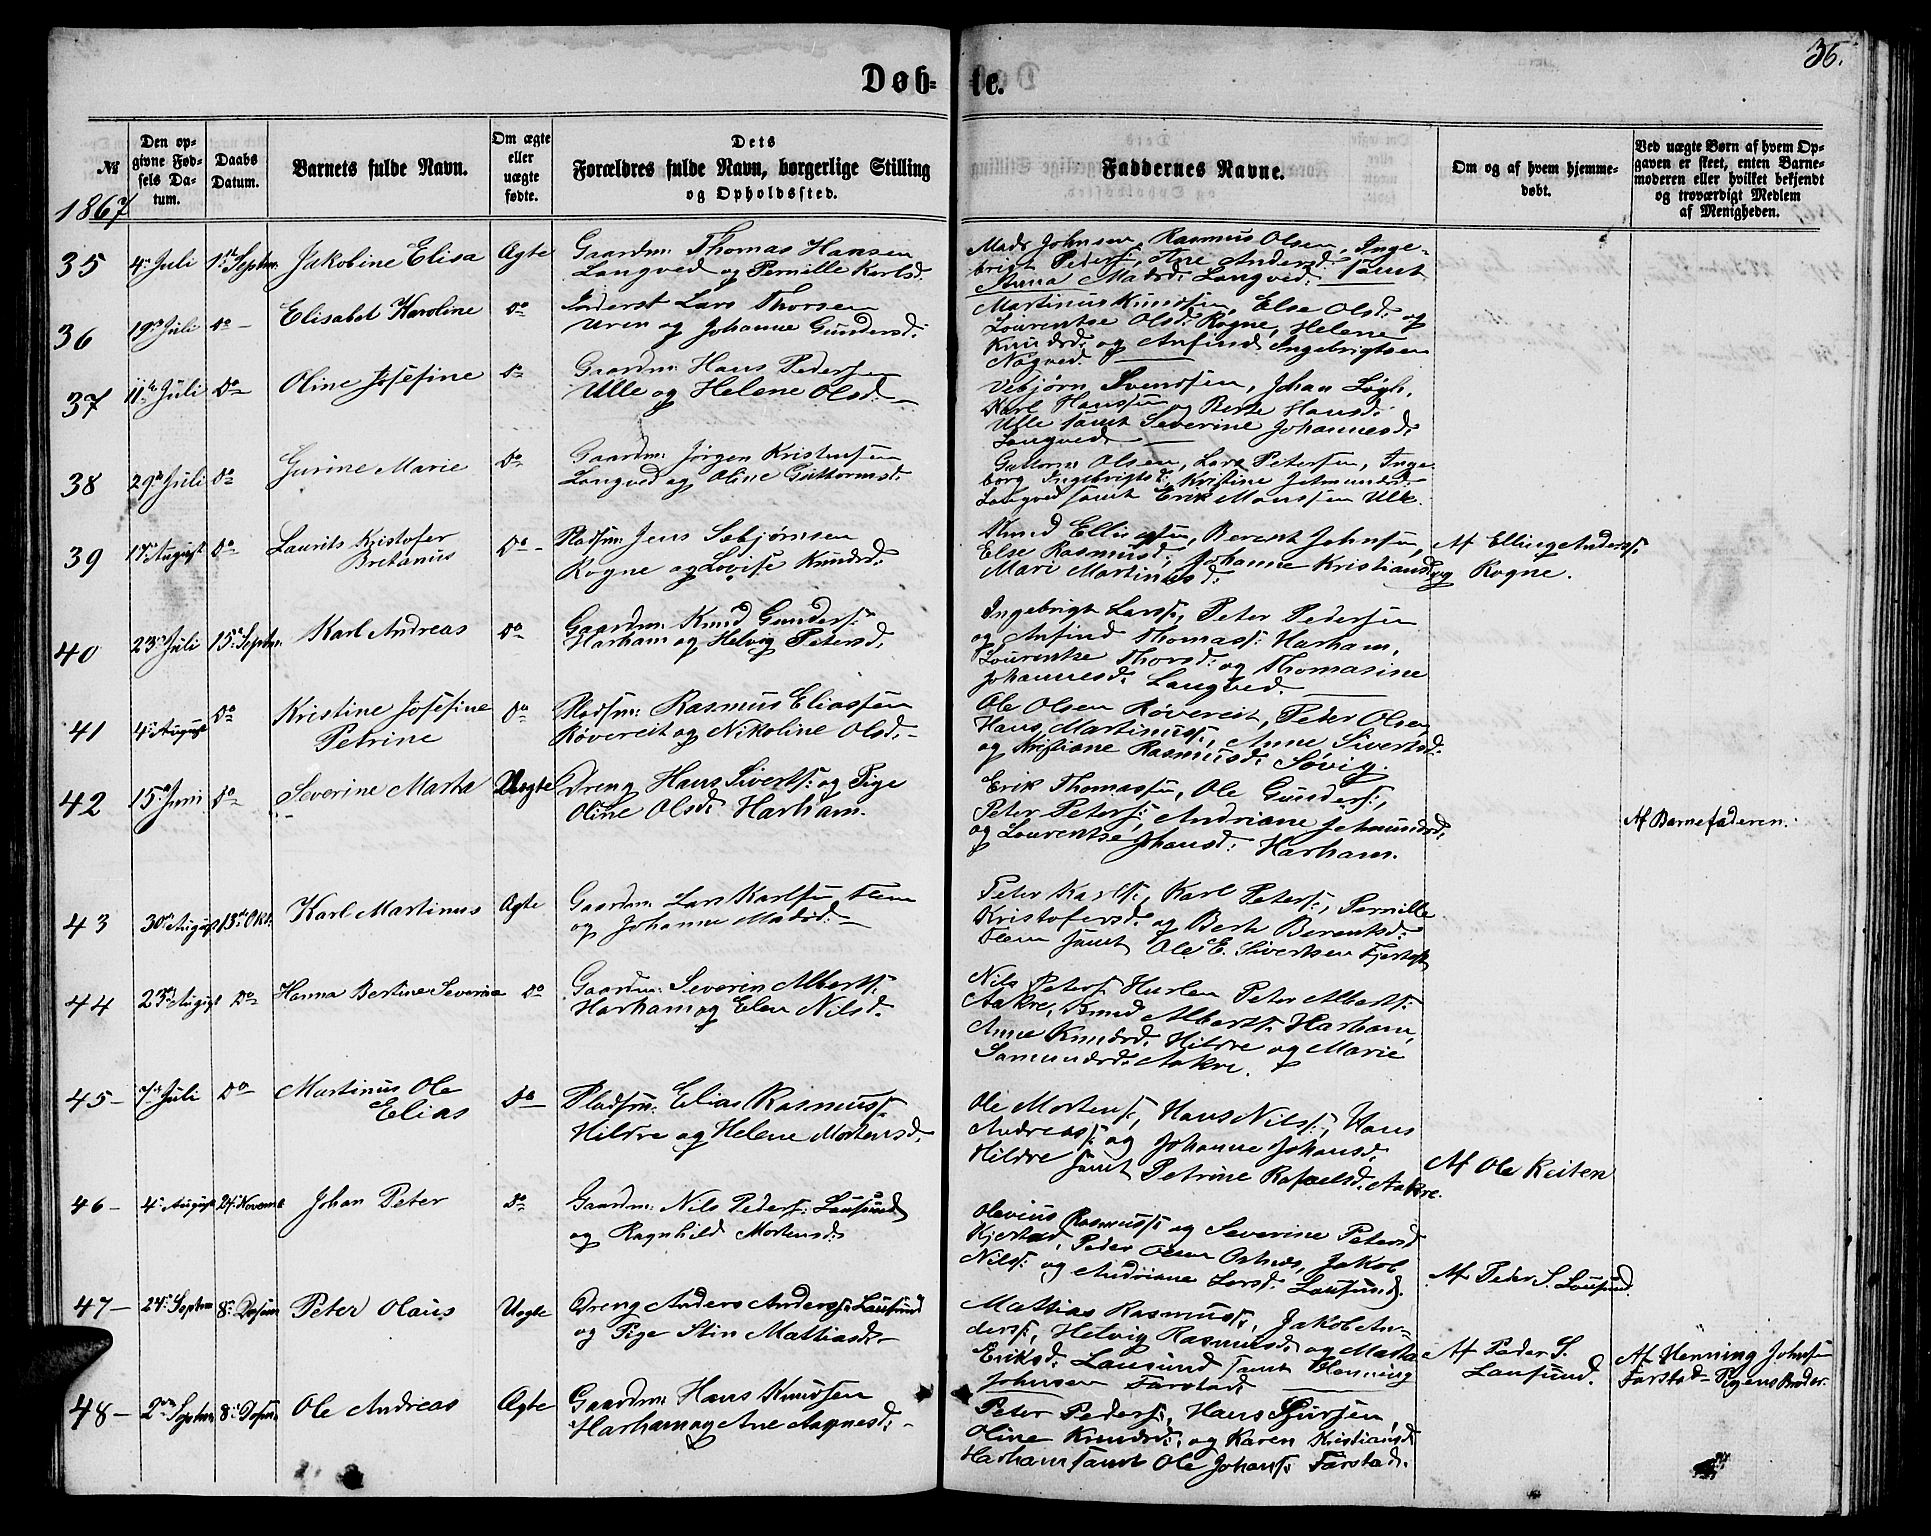 36.
Døb-
te.
№
Den op-
givne Fød-
sels Da-
tum.
Daabs
Datum.
Barnets fulde Navn.
Om ægte
eller
uægte
fødte.
Dets
Forældres fulde Navn, borgerlige Stilling
og Opholdssted.
Faddernes Navne.
Om og af hvem hjemme-
døbt.
Ved uægte Børn af hvem Op-
gaven er skeet, enten Barne-
moderen eller hvilket bekjendt
og troværdigt Medlem
af Menigheden.
1867
35
4de Juli
1ste Septm:
Jakobine Elisa
Ægte
Gaardm: Thomas Hansen
Longved og Pernille Karlsd.
Mads Johnsen, Rasmus Olsen, Inge-
brigt Peders:, Ane Andersd: samt
Anna Madsd: Longved.
36
19de Juli
Do
Elisabet Karoline
Do
Inderst Lars Thorsen
Uren og Johanne Gundersd:
Martinus Knudsen, Else Olsd: og
Lourentse Olsd: Rogne, Helene
Knudsd: og Anfind Ingebrigtsen
Nogved
37
11te Juli
Do
Oline Josefine
Do
Gaardm: Hans Pedersen
Ulle og Helene Olsd:
Vebjørn Svendsen, Johan Ligh,
Karl Hanssen og Berte Hansd:
Ulle samt Severine Johannesd:
Longved
38
29de Juli
Do
Gurine Marie
Do
Gaardm: Jørgen Kristensen
Longved og Oline Guttormsd:
Guttorm Olsen, Lars Petersen, Inge-
borg Ingebrigtsd:, Kristine Jetmundsd:
Longved samt Erik Monssen Ulle.
39
17de August
Do
Laurits Kristofer
Britanus
Do
Pladsm: Jens Sebjørnsen
Rogne og Lovise Knudsd:
Knud Ellingsen, Berent Johnsen,
Else Rasmusd:, Johanne Kristiansd: og
Mari Martinusd:
Af Elling Anderss:
Rogne.
40
23de Juli
15de Septm:
Karl Andreas
Do
Gaardm: Knud Gunders:
Harham og Helvig Petersd:
Ingebrigt Larss:, Peter Pedersen
og Anfind Thomass: Harham,
Lourentse Thorsd: og Thomasine
Johannesd: Longved.
41
4de August
Do
Kristine Josefine
Petrine
Do
Pladsm: Rasmus Eliassen
Røvereit og Nikoline Olsd:
Ole Olsen Røvereit, Peter Olsen,
Hans Martinuss:, Anne Sivertsd:
og Kristiane Rasmusd: Søvig.
42
15de Juni
Do
Severine Marta
Uægte
Dreng Hans Siverts: og Pige
Oline Olsd: Harham.
Erik Thomassen, Ole Gunders:,
Peter Peters:, Andriane Jetmundsd:
og Lourentse Johansd: Harham.
Af Barnefaderen.
43
30te August
13de Okt:
Karl Martinus
Ægte
Gaardm: Lars Karlsen Flem
og Johanne Madsd:
Peter Karls:, Karl Peters:, Pernille
Kristofersd: og Berte Berentsd:
Flem samt Ole E. Sivertsen Fjertoft
44
23de August
Do
Hanna Bertine Severine
Do
Gaardm: Severin Alberts:
Harham og Elen Nilsd.
Nils Peters: Hurlen Peter Alberts:
Aakre, Knud Alberts: Harham,
Anne Knudsd. Hildre og Marie
Samundsd: Aakre.
45
7de Juli
Do
Martinus Ole
Elias
Do
Pladsm: Elias Rasmuss:
Hildre og Helene Mortensd.
Ole Mortens:, Hans Nilss:, Hans
Andreass: og Johanne Johansd:
Hildre samt Petrine Rafaelsd. Aakre.
Af Ole Reiten
46
4de August
24de Novemb
Johan Peter
Do
Gaardm: Nils Peders: Lausund
og Ragnhild Mortensd:
Olevius Rasmuss: og Severine Petersd
Kjerstad, Peder Olsen Østnes, Jakob
Nilss: og Andriane Larsd. Lausund.
Af Peder S. Lausund.
47
24de Septm
8de Desem
Peter Olaus
Uægte
Dreng Anders Anderss: Lausund
og Pige Stin Mattiasd:
Mattias Rasmuss:, Jakob An-
ders:, Helvig Rasmusd: og Marta
Eriksd. Lausund samt Henning
Johnsen Farstad.
Af Peder S.
Lausund.
Af Henning Johnsen
Farstad Pigens Broder.
48
2den Septm
8de Desem
Ole Andreas
Ægte
Gaardm: Hans Knudsen
Harham og Ane Aagesd:
Peter Peders:, Hans Sjursen,
Oline Knudsd:, og Karen Kristiansd:
Harham samt Ole Johans: Farstad.